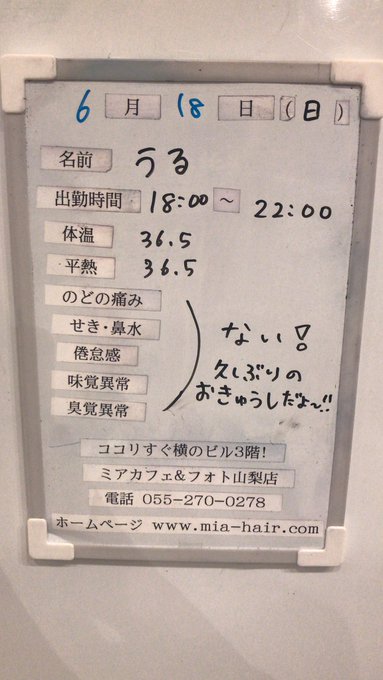 6月18日(日)
名前 うる
出勤時間 18:00 ～ 22:00
体温 36.5
平熱 36.5
のどの痛み
せき・鼻水
倦怠感
味覚異常
臭覚異常
ない!
久しぶりの
おきゅうしだよ〜!!
ココリすぐ横のビル3階!
ミアカフェ&フォト山梨店
電話 055-270-0278
ホームページ www.mia-hair.com